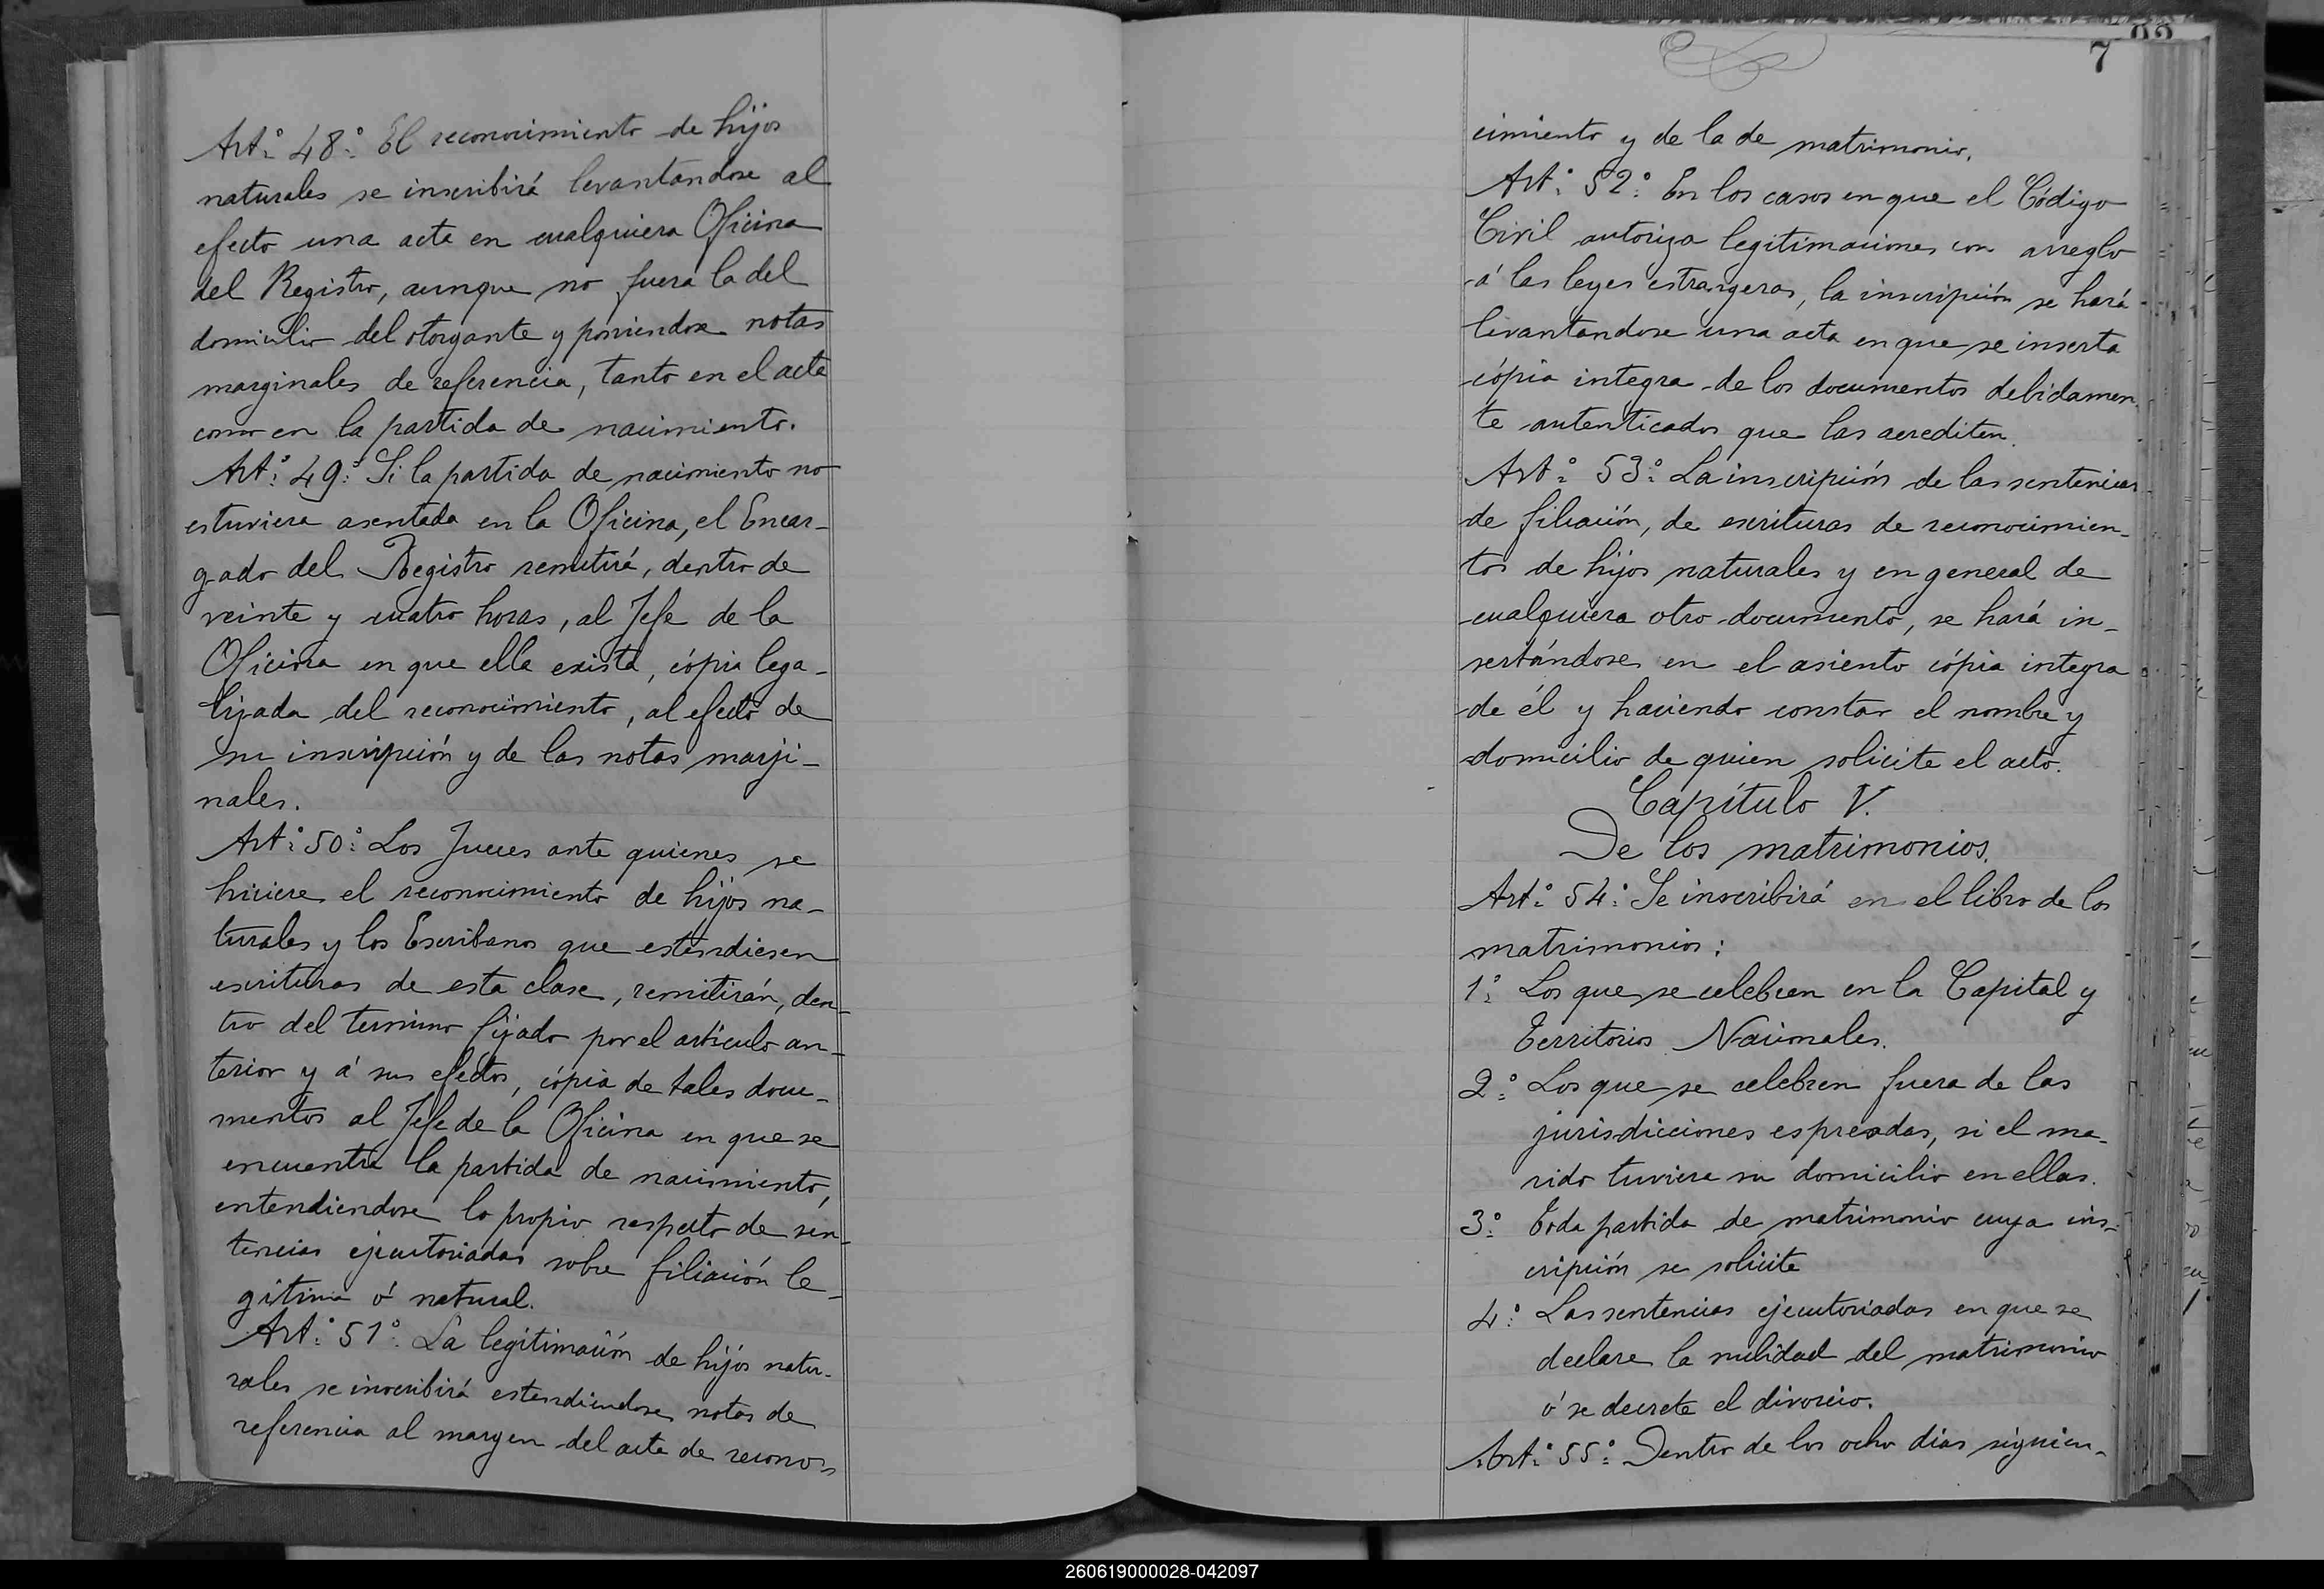 Art.° 48.° El reconocimiento de hijos
naturales se inscribirá levantandose al
efecto una acta en cualquiera Oficina
del Registro, aunque no fuera la del
domicilio del otorgante y poniendose notas
marginales de referencia, tanto en el acta
como en la partida de nacimiento.
Art.° 49.° Si la partida de nacimiento no
estuviera asentada en la Oficina, el Encar-
gado del Registro remitirá, dentro de
veinte y cuatro horas, al Jefe de la
Oficina en que ella exista, cópia lega-
lizada del reconocimiento, al efecto de
su inscripción y de las notas marji-
nales.
Art.° 50.° Los Jueces ante quienes se
hiciere el reconocimiento de hijos na-
turales y los Escribanos que estendiesen
escrituras de esta clase, remitirán, den-
tro del termino fijado por el artículo an-
terior y á sus efectos, cópia de tales docu-
mentos al Jefe de la Oficina en que se
encuentre la partida de nacimiento,
entendiendose lo propio respecto de sen-
tencias ejecutoriadas sobre filiación le-
gitima ó natural.
Art.° 51.° La legitimación de hijos natu-
rales se inscribirá estendiendose notas de
referencia al margen del acta de recono-
7
92
cimiento y de la de matrimonio.
Art.° 52.° En los casos en que el Código
Civil autoriza legitimaciones con arreglo
á las leyes estrangeras, la inscripción se hará
levantandose una acta en que se inserta
cópia integra de los documentos debidamen-
te autenticados que las acrediten.
Art.° 53.° La inscripción de las sentencias
de filiación, de escrituras de reconocimien-
tos de hijos naturales y en general de
cualquiera otro documento, se hará in-
sertándose en el asiento cópia integra
de él y haciendo constar el nombre y
domicilio de quien solicite el acto.
Capítulo V.
De los matrimonios.
Art.° 54.° Se inscribirá en el libro de los
matrimonios:
1.° Los que se celebren en la Capital y
Territorios Nacionales.
2.° Los que se celebren fuera de las
jurisdicciones espresadas, si el ma-
rido tuviere su domicilio en ellas.
3.° Toda partida de matrimonio cuya ins-
cripción se solicite
4.° Las sentencias ejecutoriadas en que se
declare la nulidad del matrimonio
ó se decrete el divorcio.
Art.° 55.° Dentro de los ocho dias siguien-
260619000028-042097